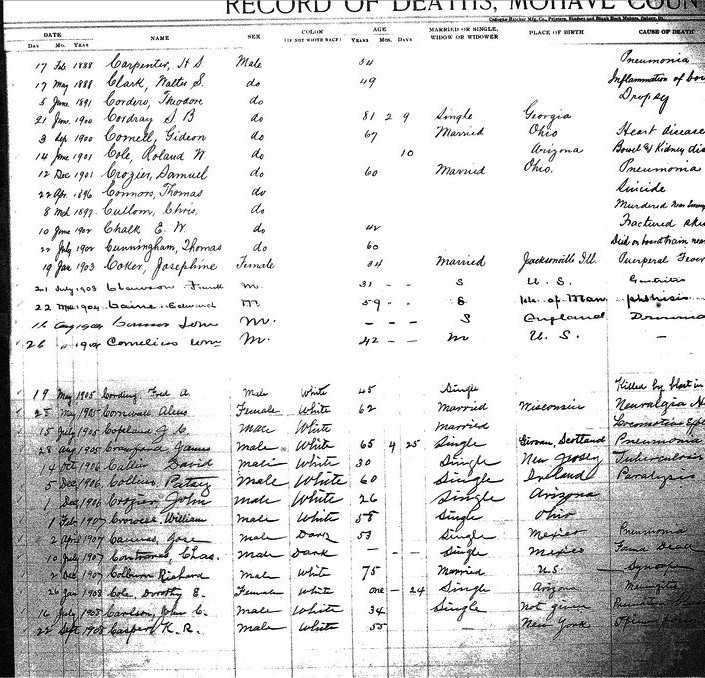 RECORD OF DEATHS, MOHAVE COUN
DATE NAME SEX COLOR AGE MARRIED OR SINGLE, PLACE OF BIRTH CAUSE OF DEATH
(IF NOT WHITE RACE) WIDOW OR WIDOWER
DAY Mo. YEAR YEARS Mos. DAYS
17 Feb 1888 Carpenter, H S Male 54 Pneumonia
17 May 1888 Clark, Walter S. do 49 Inflammation of bow
5 June 1891 Cordero, Theodore do Dropsy
21 1900 Cordray S B do 81 2 9 Single Georgia
3 Sep 1900 Cornell, Gideon do 67 Married Ohio Heart disease
14 June 1901 Cole, Roland W. do 10 Arizona Bowel & Kidney dis
12 Dec 1901 Crozier, Samuel do 60 Married Ohio. Pneumonia
22 Apr. 1896 Connors, Thomas do Suicide
8 1897. Cullom, Chris, do Murdered Near
10 June 1902 Chalk E. W. do 42 Fractured sku
22 July 1902 Cunningham, Thomas do 60 Died on board train near
19 Jan 1903 Coker, Josephine Female 34 Married Jacksonville Ill. Puerperal Fever
21 July 1903 Clawson Frank M. 31 - - S U. S. Gastritis
22 1904 Caine Edward M. 59 - - S Isle of Man phthisis
11 Aug 1904 M. - - - S England
26 " 1904 Cornelius Wm M. 42 - - M U. S. -
19 May 1905 Cording Fred A. Male White 45 Single Killed by blast in
25 May 1905 Cornwall Female White 62 Married Wisconsin Neuralgia H
15 July 1905 Copeland J C Male White Married Locomotive
28 Aug 1905 Crawford James Male White 65 4 25 Single Girvan, Scotland Pneumonia
14 Oct 1906 David Male White 30 Single New Jersey Tuberculosis
5 Dec 1906 Collins Patsy Male White 60 Single Ireland Paralysis
1 Dec 1906 Crozier John Male White 26 Single Arizona
1 Feb 1907 Crowell, William Male White 58 Single Ohio
2 April 1907 Jose Male Dark 53 Single Mexico Pneumonia
10 July 1907 Contreras, Chas. Male Dark - - Single Mexico Found Dead
2 Dec 1907 Colburn Richard Male White 75 Married U.S. Syncope
26 Jan 1908 Cole, Dorothy E. Female White one - 24 Single Arizona Meningitis
16 July 1908 Carlson, John C. Male White 34 Single not given
22 Sept 1908 Casper K. R. Male White 55 - New York